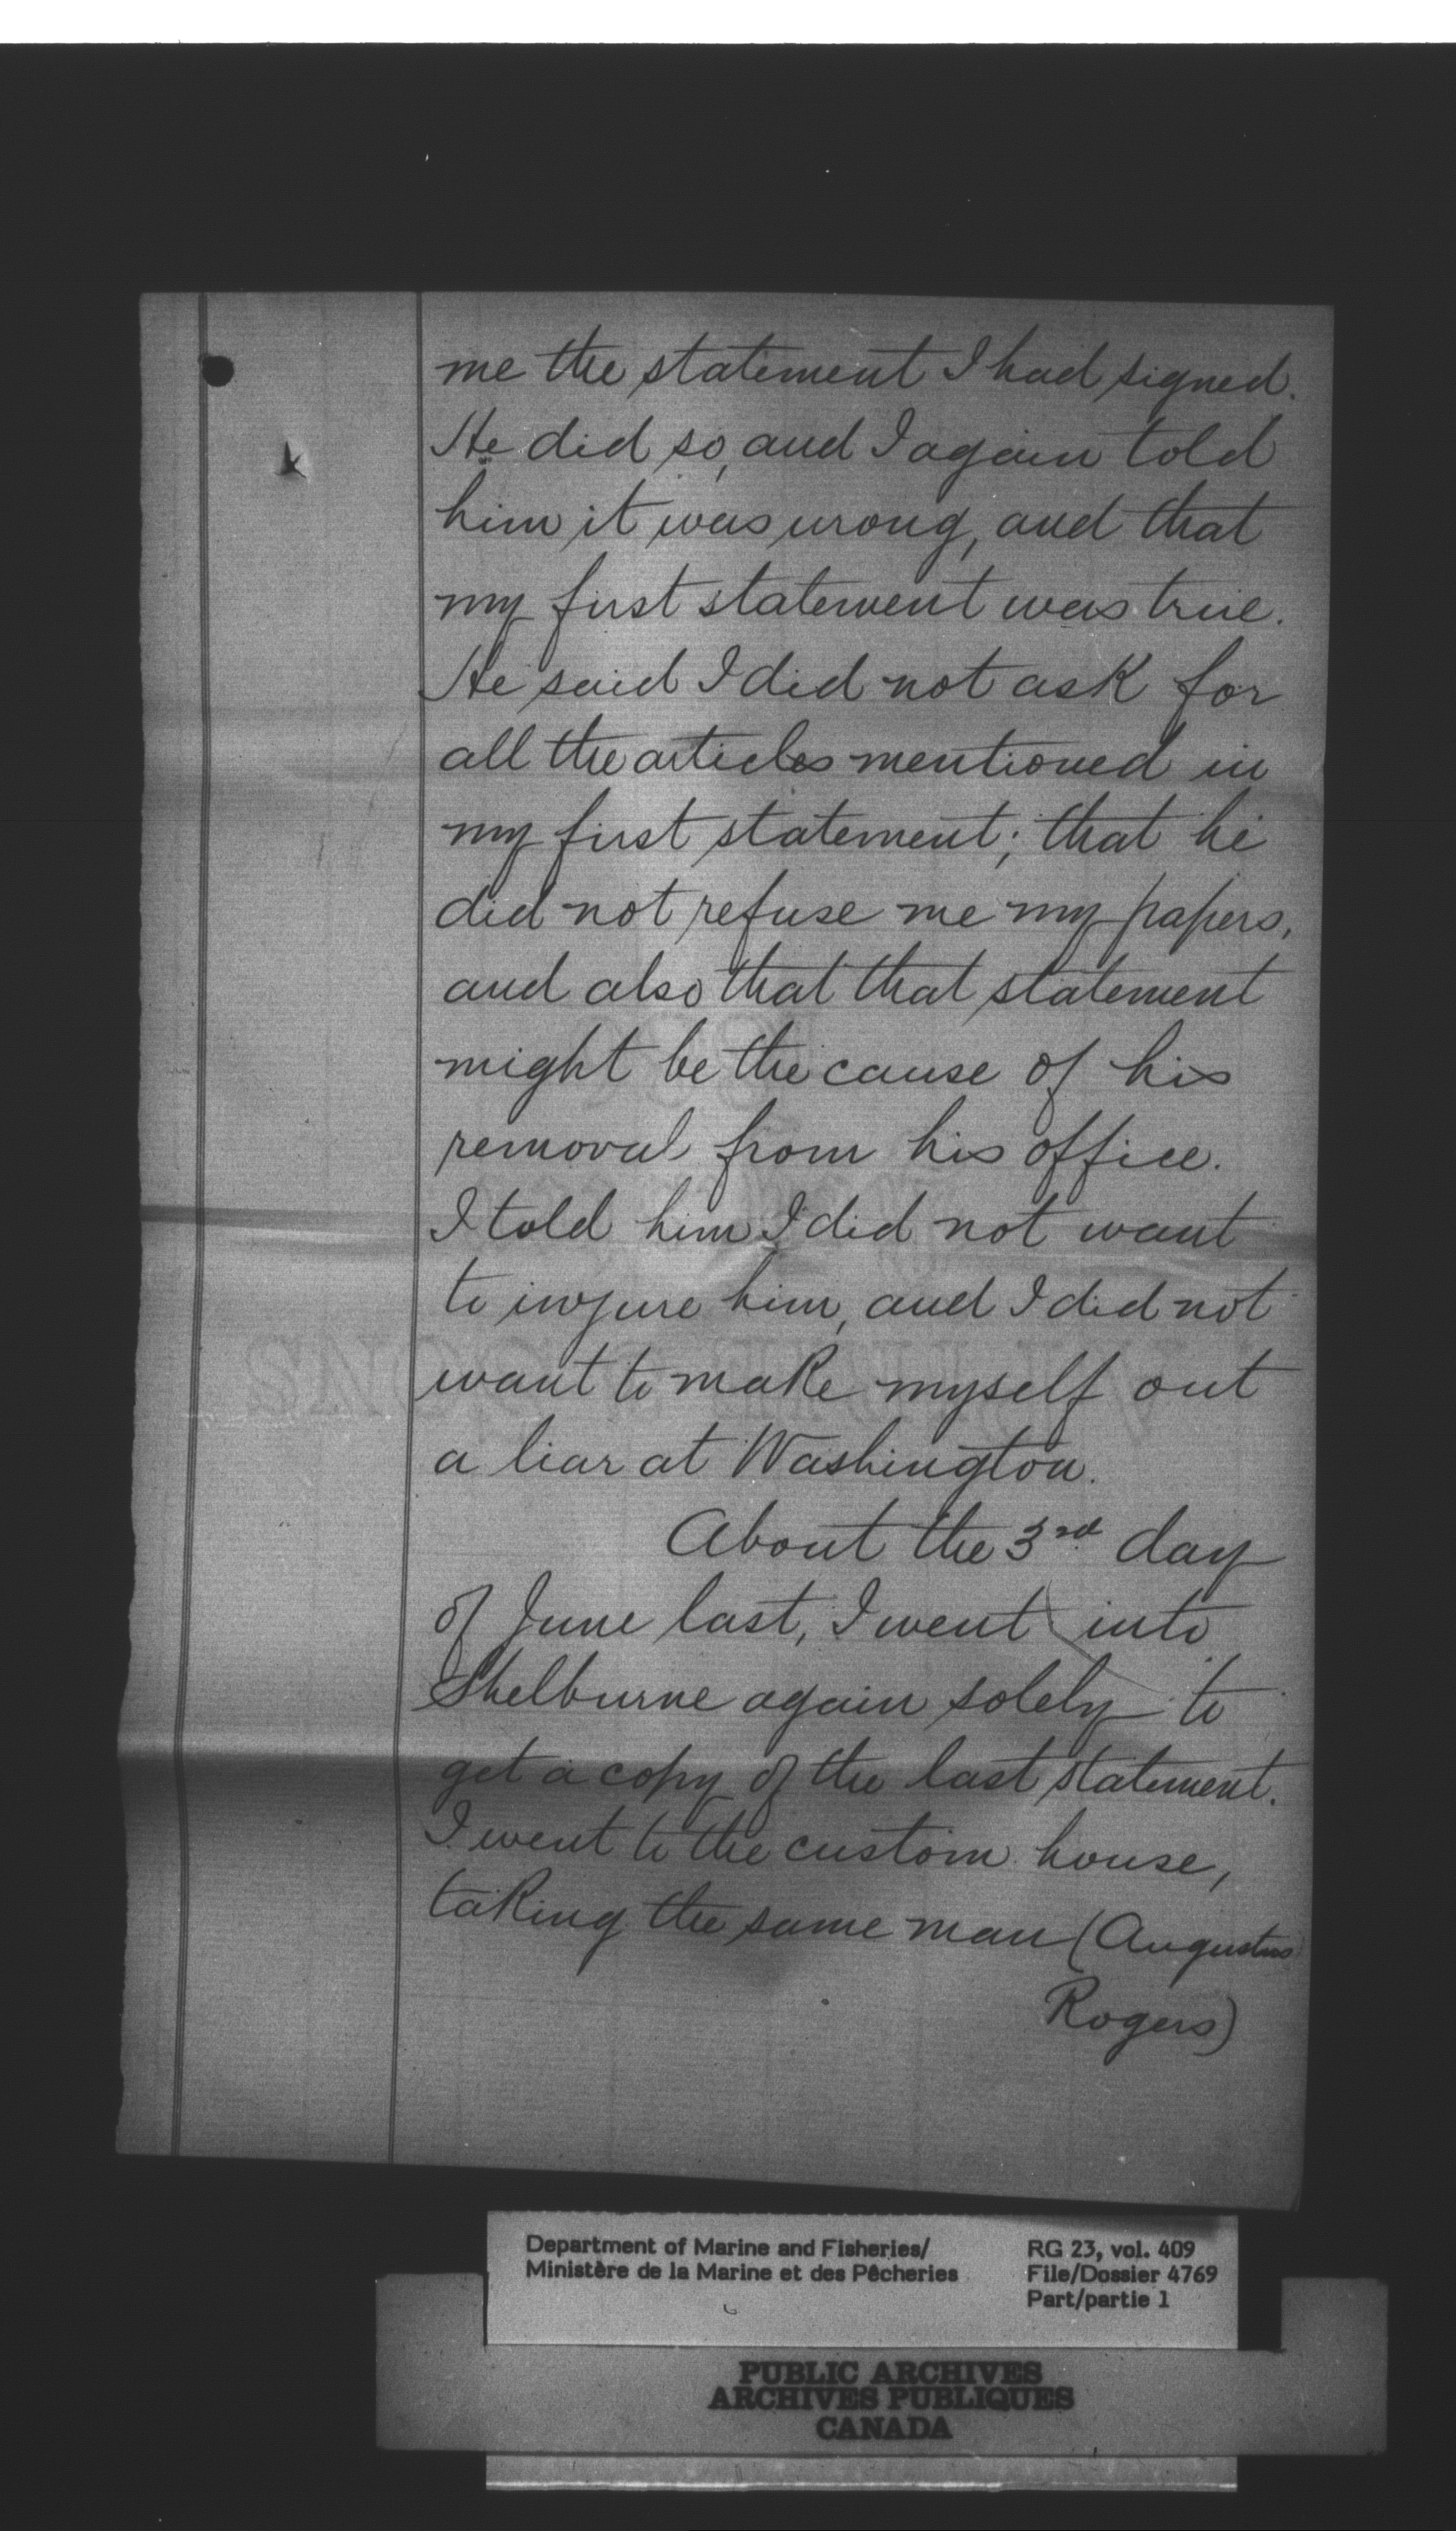 me the statement I had signed.
He did so, and I again told
him it was wrong, and that
my first statement was true.
He said I did not ask for
all the articles mentioned in
my first statement; that he
did not refuse me my papers,
and also that that statement
might be the cause of his
removal from his office.
I told him I did not want
to injure him, and I did not
want to make myself out
a liar at Washington.
About the 3rd day
of June last, I went into
Shelburne again solely to
get a copy of the last statement.
I went to the custom house,
taking the same man (Augustus
Rogers)
Department of Marine and Fisheries/
Ministère de la Marine et des Pêcheries
RG 23, vol. 409
File/Dossier 4769
Part/partie 1
PUBLIC ARCHIVES
ARCHIVES PUBLIQUES
CANADA